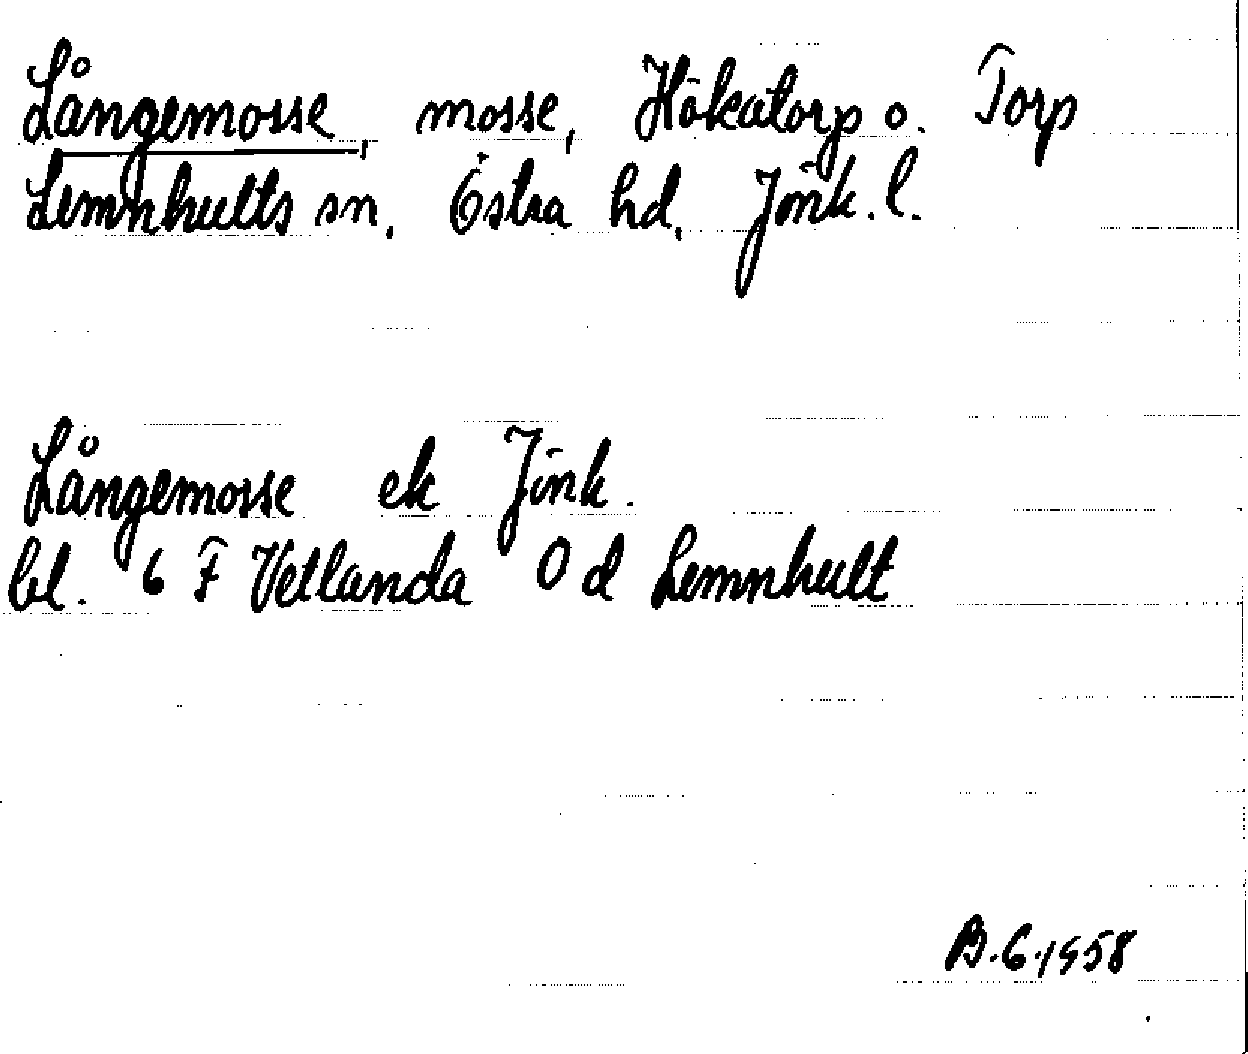 Långemosse, mosse, Hökatorp o. Torp
Lemnhults sn, Östra hd, Jönk. l.
Långemosse ek Jönk.
bl. 6 F Vetlanda 0 d Lemnhult
B.G.1958